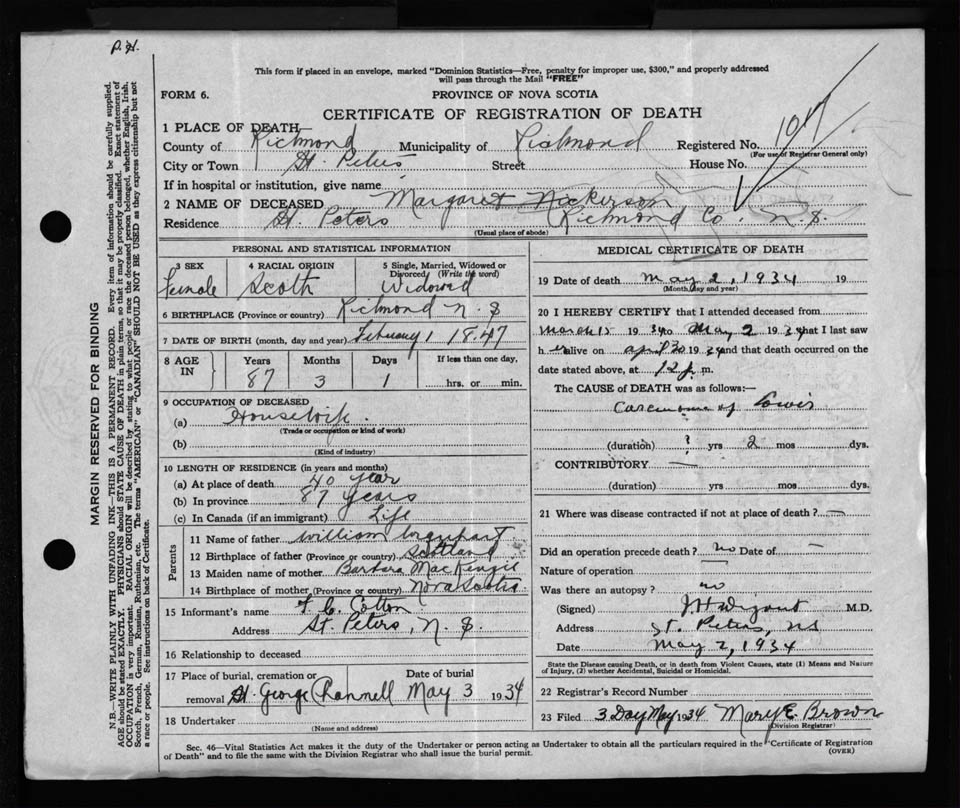 P. H.
This form if placed in an envelope, marked "Dominion Statistics—Free, penalty for improper use, $300," and properly addressed
will pass through the Mail "FREE"
FORM 6. PROVINCE OF NOVA SCOTIA
CERTIFICATE OF REGISTRATION OF DEATH
1 PLACE OF DEATH—
County of Richmond Municipality of Richmond Registered No.
(For use of Registrar General only)
City or Town St. Peters Street House No.
If in hospital or institution, give name
2 NAME OF DECEASED Margaret Nickerson
Residence St. Peters Richmond Co. N. S.
(Usual place of abode)
PERSONAL AND STATISTICAL INFORMATION
3 SEX 4 RACIAL ORIGIN 5 Single, Married, Widowed or
Divorced (Write the word)
Female Scotch Widowed
6 BIRTHPLACE (Province or country) Richmond N. S
7 DATE OF BIRTH (month, day and year) February 1 1847
8 AGE IN Years Months Days If less than one day,
87 3 1 hrs. or min.
9 OCCUPATION OF DECEASED
(a) Housewife.
(Trade or occupation or kind of work)
(b)
(Kind of industry)
10 LENGTH OF RESIDENCE (in years and months)
(a) At place of death 40 year
(b) In province 87 years
(c) In Canada (if an immigrant) Life
Parents
11 Name of father William Urquhart
12 Birthplace of father (Province or country) Scotland
13 Maiden name of mother Barbara MacKenzie
14 Birthplace of mother (Province or country) Nova Scotia
15 Informant's name F. C. Cotton
Address St. Peters, N. S.
16 Relationship to deceased
17 Place of burial, cremation or Date of burial
removal St George Channell May 3 1934
18 Undertaker
(Name and address)
MEDICAL CERTIFICATE OF DEATH
19 Date of death May 2, 1934 19
(Month, day and year)
20 I HEREBY CERTIFY that I attended deceased from
March 15 1934 to May 2 1934 that I last saw
h er alive on April 30 1934 and that death occurred on the
date stated above, at 12 p. m.
The CAUSE of DEATH was as follows:—
Carcinoma of bowels
(duration) ? yrs 2 mos dys.
CONTRIBUTORY —
(duration) yrs mos dys.
21 Where was disease contracted if not at place of death? —
Did an operation precede death? no Date of —
Nature of operation
Was there an autopsy? no
(Signed) M.D.
Address St. Peters, NS
Date May 2, 1934
State the Disease causing Death, or in death from Violent Causes, state (1) Means and Nature
of Injury, (2) whether Accidental, Suicidal or Homicidal.
22 Registrar's Record Number
23 Filed 3 Day May 1934 Mary E. Brown
Division Registrar)
Sec. 46—Vital Statistics Act makes it the duty of the Undertaker or person acting as Undertaker to obtain all the particulars required in the "Certificate of Registration
of Death" and to file the same with the Division Registrar who shall issue the burial permit. (OVER)
MARGIN RESERVED FOR BINDING
N.B.—WRITE PLAINLY WITH UNFADING INK—THIS IS A PERMANENT RECORD. Every item of information should be carefully supplied.
AGE should be stated EXACTLY. PHYSICIANS should STATE CAUSE OF DEATH in plain terms, so that it may be properly classified. Exact statement of
OCCUPATION is very important. RACIAL ORIGIN will be described by stating to what people or race the deceased person belonged, whether English, Irish,
Scotch, French, German, Russian, Ruthenian, etc. The terms "AMERICAN" or "CANADIAN" SHOULD NOT BE USED as they express citizenship but not
a race or people. See instructions on back of Certificate.